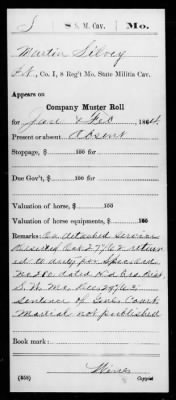 S | 8 S. M. Cav. | Mo.
Martin Silvey
Pvt., Co. I, 8 Reg't Mo. State Militia Cav.
Appears on
Company Muster Roll
for Jan & Feb, 1864.
Present or absent Absent
Stoppage, $ 100 for
Due Gov't, $ 100 for
Valuation of horse, $ 100
Valuation of horse equipments, $ 100
Remarks: On detached service
Deserted Oct 27/62 return
ed to duty per Special Ord
No 280 dated Hd Qrs Dist
S. W. Mo. Dec 29/63,
sentence of Genl Court
Martial not published
Book mark:
(858)
Copyist